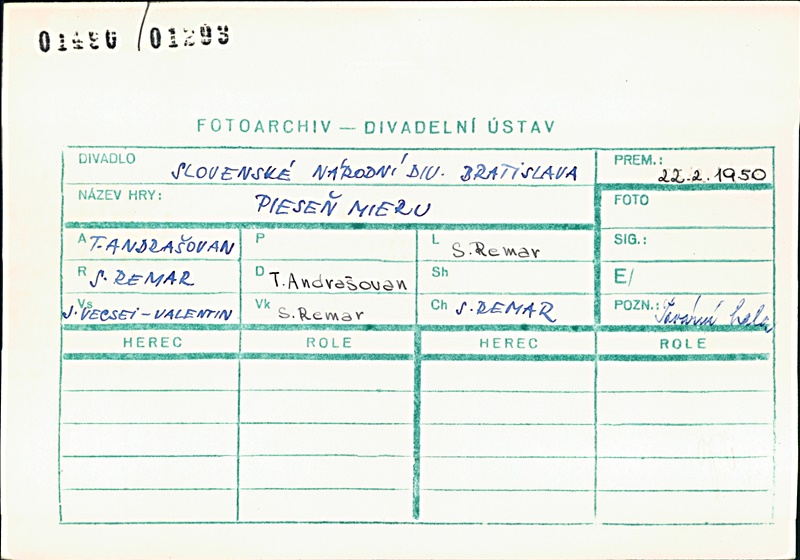 01490/01293
FOTOARCHIV — DIVADELNÍ ÚSTAV
DIVADLO SLOVENSKÉ NÁRODNÍ DIV. BRATISLAVA
PREM.: 22.2.1950
NÁZEV HRY: PIESEŇ MIERU
FOTO
A T. ANDRAŠOVAN
P
L S. Remar
SIG.:
R S. REMAR
D T. Andrašovan
Sh
E/
Vs J. VECSEI-VALENTIN
Vk S. Remar
Ch S. REMAR
POZN.:
HEREC ROLE HEREC ROLE